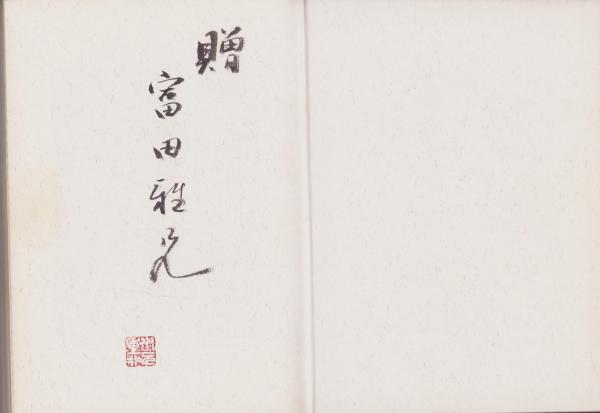 贈
富田雅兄